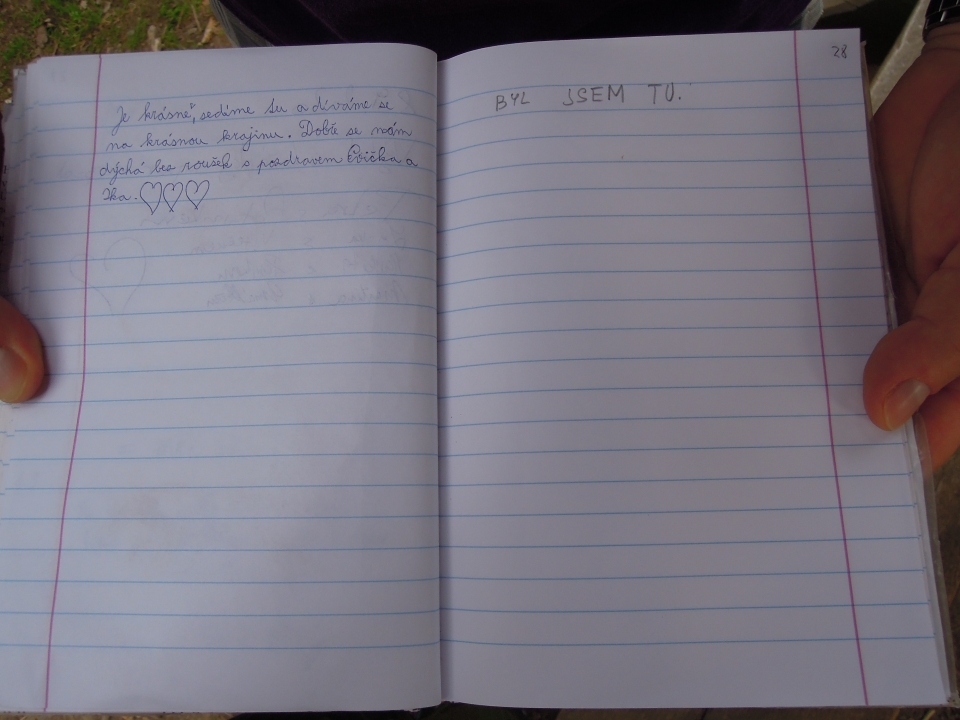 Je krásně, sedíme tu a díváme se
na krásnou krajinu. Dobře se nám
dýchá bez roušek s pozdravem Evička a
28
BYL JSEM TU.